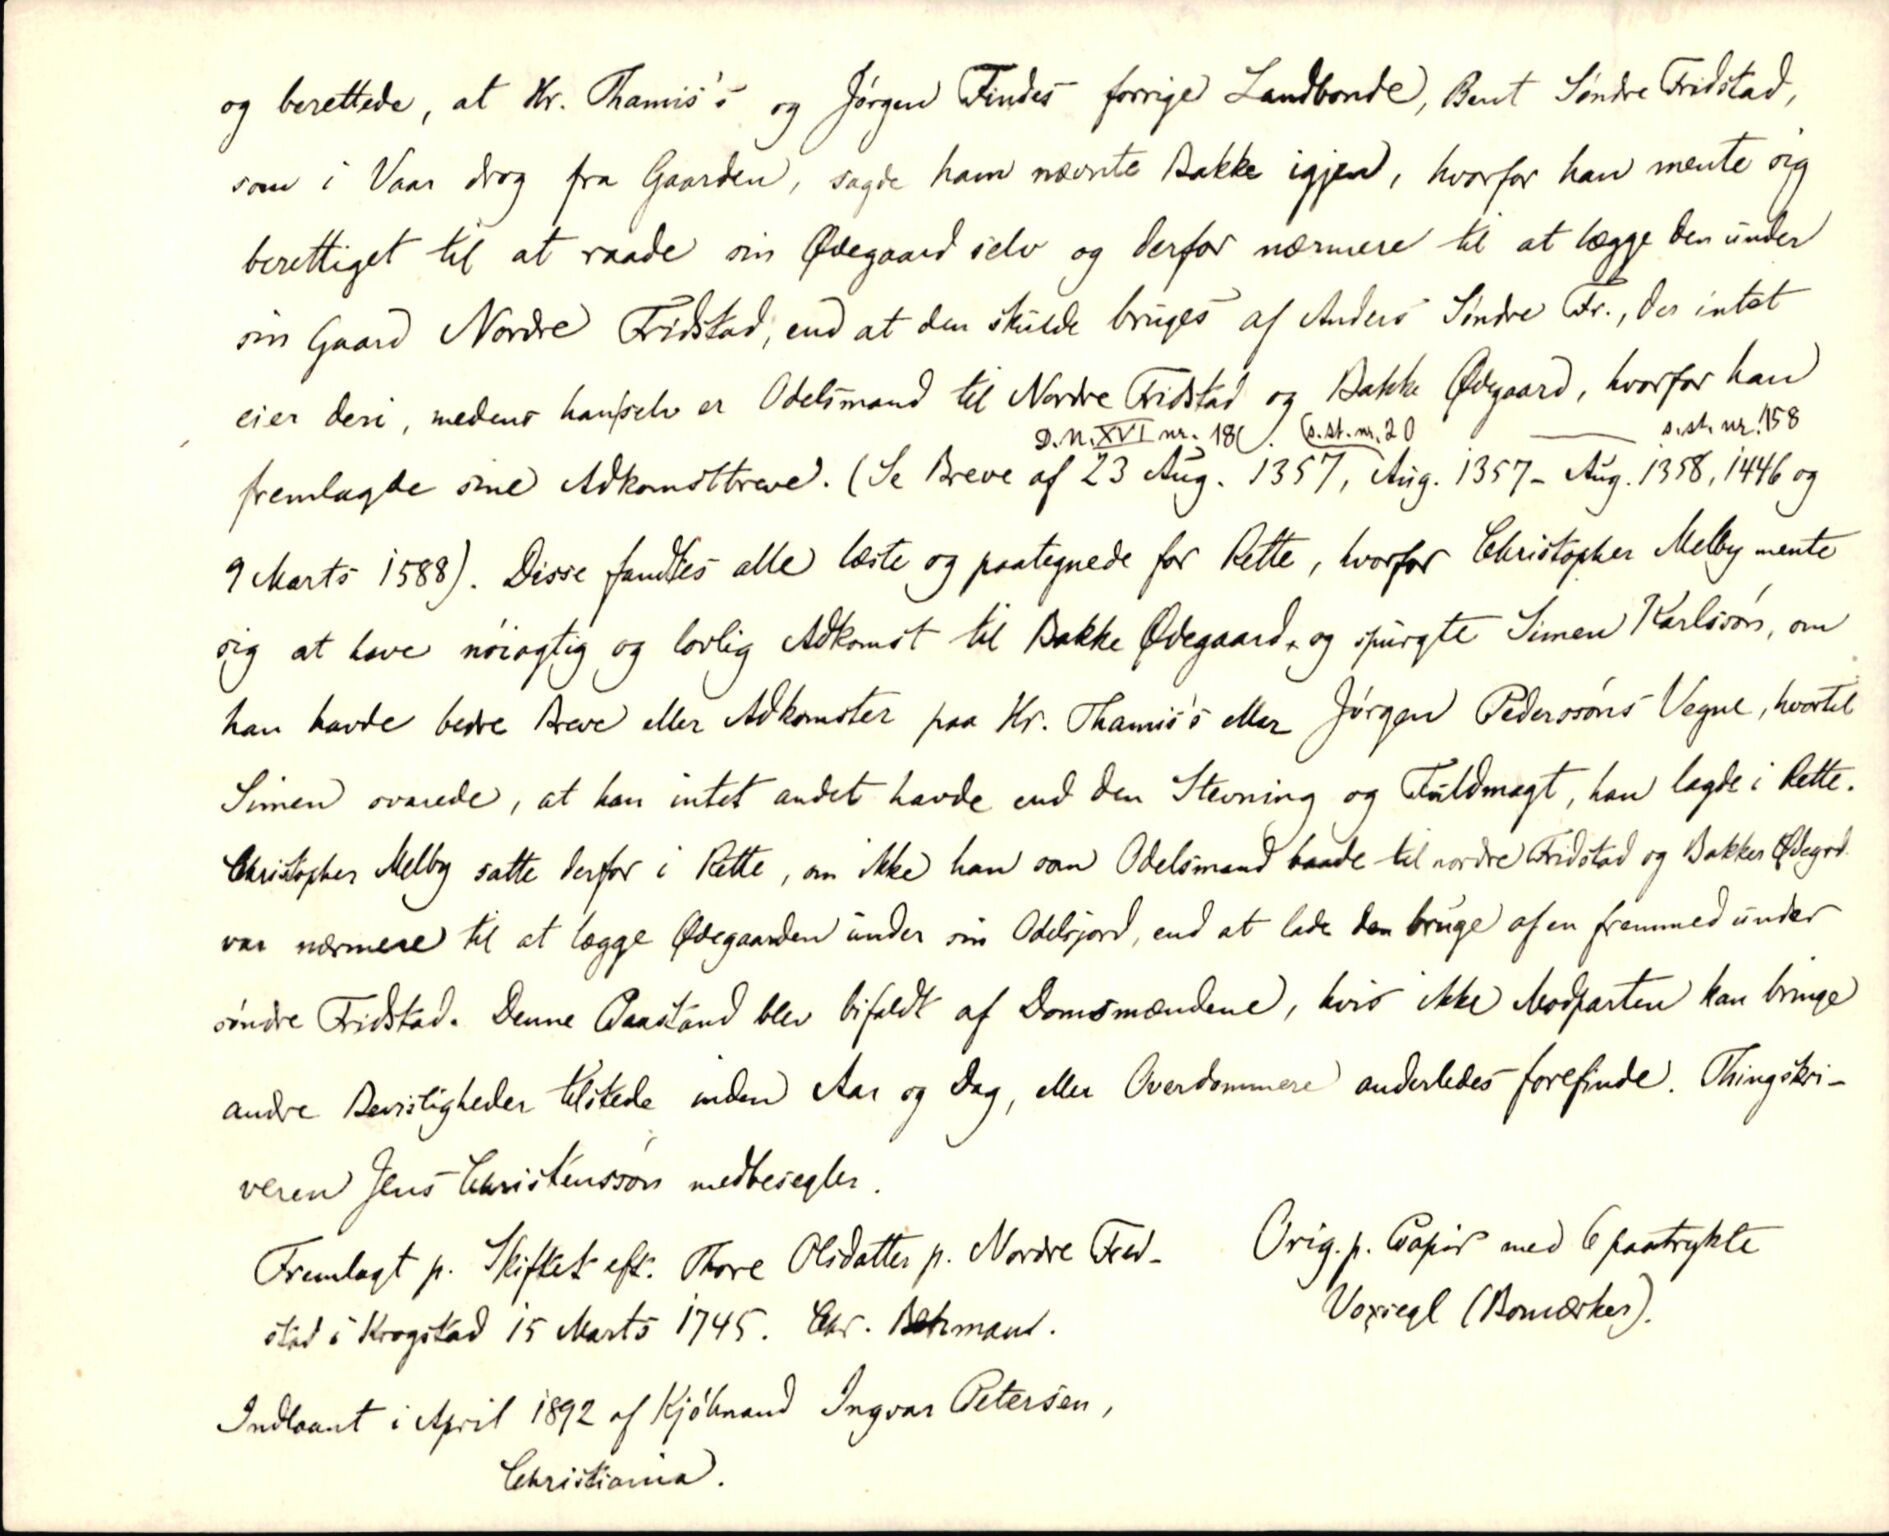 og berettede, at Hr. Thamis's og Jørgen Findes forrige Landbonde, Bent Søndre Fridstad,
som i Vaar drog fra Gaarden, sagde ham nævnte Bakke igjen, hvorfor han mente sig
berettiget til at raade sin Ødegaard selv og derfor nærmere til at lægge den under
sin Gaard Nordre Fridstad, end at den skulde bruges af Anders Søndre Fr., der intet
eier deri, medens han selv er Odelsmand til Nordre Fridstad og Bakke Ødegaard, hvorfor han
D.N. XVI nr. 18 . (s. st. nr. 20 — s. st. nr. 158
fremlagde sine Adkomstbreve. (Se Breve af 23 Aug. 1357, Aug. 1357 - Aug. 1358, 1446 og
9 Marts 1588). Disse fandtes alle læste og paategnede for Rette, hvorfor Christopher Melby mente
sig at have nøiagtig og lovlig Adkomst til Bakke Ødegaard, og spurgte Simen Karlssøn, om
han havde bedre Breve eller Adkomster paa Hr. Thamis's eller Jørgen Pederssøns Vegne, hvortil
Simen svarede, at han intet andet havde end den Stevning og Fuldmagt, han lagde i Rette.
Christopher Melby satte derfor i Rette, om ikke han som Odelsmand baade til nordre Fridstad og Bakker Ødegrd
var nærmere til at lægge Ødegaarden under sin Odelsjord, end at lade den bruge af en fremmed under
søndre Fridstad. Denne Paastand blev bifaldt af Domsmændene, hvis ikke Modparten kan bringe
andre Bevisligheder tilstede inden Aar og Dag, eller Overdommere anderledes forefinde. Thingskri-
veren Jens Christenssøn medbesegler.
Fremlagt p. Skiftet eft. Thore Olsdatter p. Nordre Fred-
stad i Krogstad 15 Marts 1745. Chr. Behmann.
Orig. p. Papir med 6 paatrykte
Voxsegl (Bomærker).
Indlaant i April 1892 af Kjøbmand Ingvar Petersen,
Christiania.